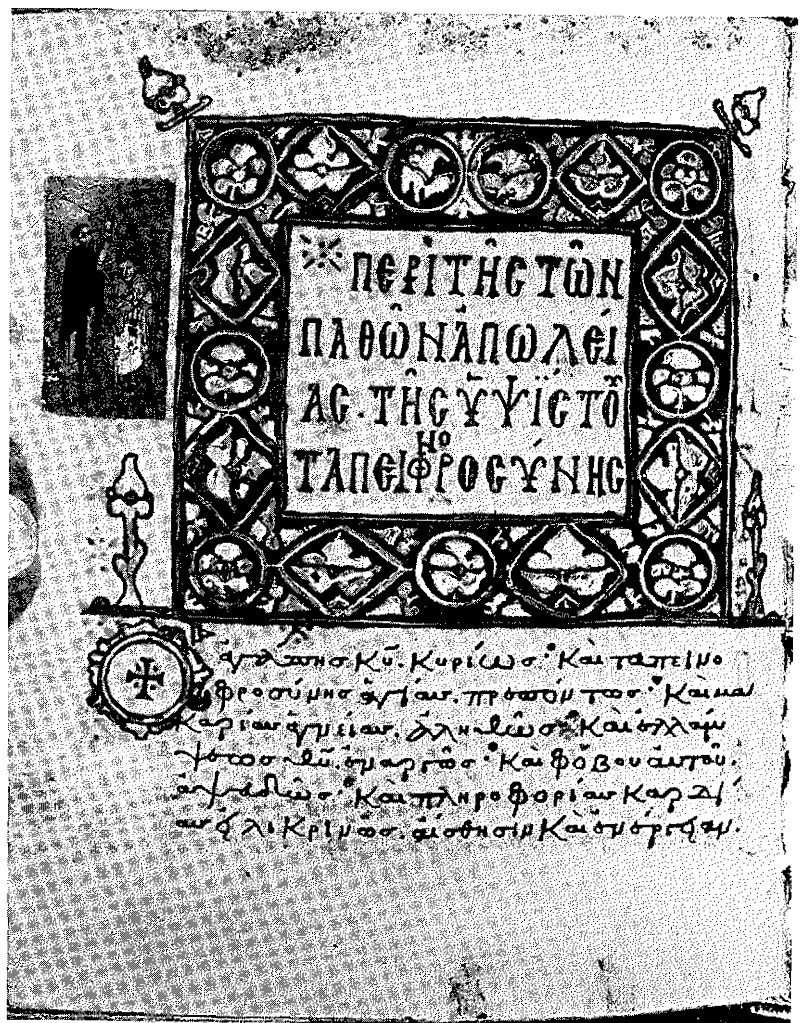 ※ ΠΕΡῚ ΤΗ͂C ΤΩ͂Ν
ΠΑΘΩ͂Ν ἈΠΩΛΕΊ
ΑC· ΤΗ͂C ὙΨΊCΤΟΥ
ΤΑΠΕΙΝΟΦΡΟCΎΝΗC
Ὁ ἀγάπης κ̅υ̅. κυρίως· καὶ ταπεινο
φροσύνης ἁγίαν. πρεπόντως· καὶ μα
καρίαν ἁγνείαν. ἀληθῶς· καὶ ἐλλάμ
ψεως θ̅υ̅. ἐναργῶς· καὶ φόβου αὐτοῦ.
ἀψευδῶς. καὶ πληροφορίαν καρδί
ας εἰλικρινῶς. αἴσθησιν καὶ ἐνέργειαν.